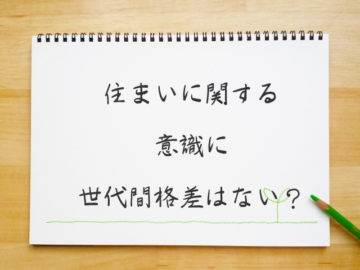 住まいに関する
意識に
世代間格差はない?